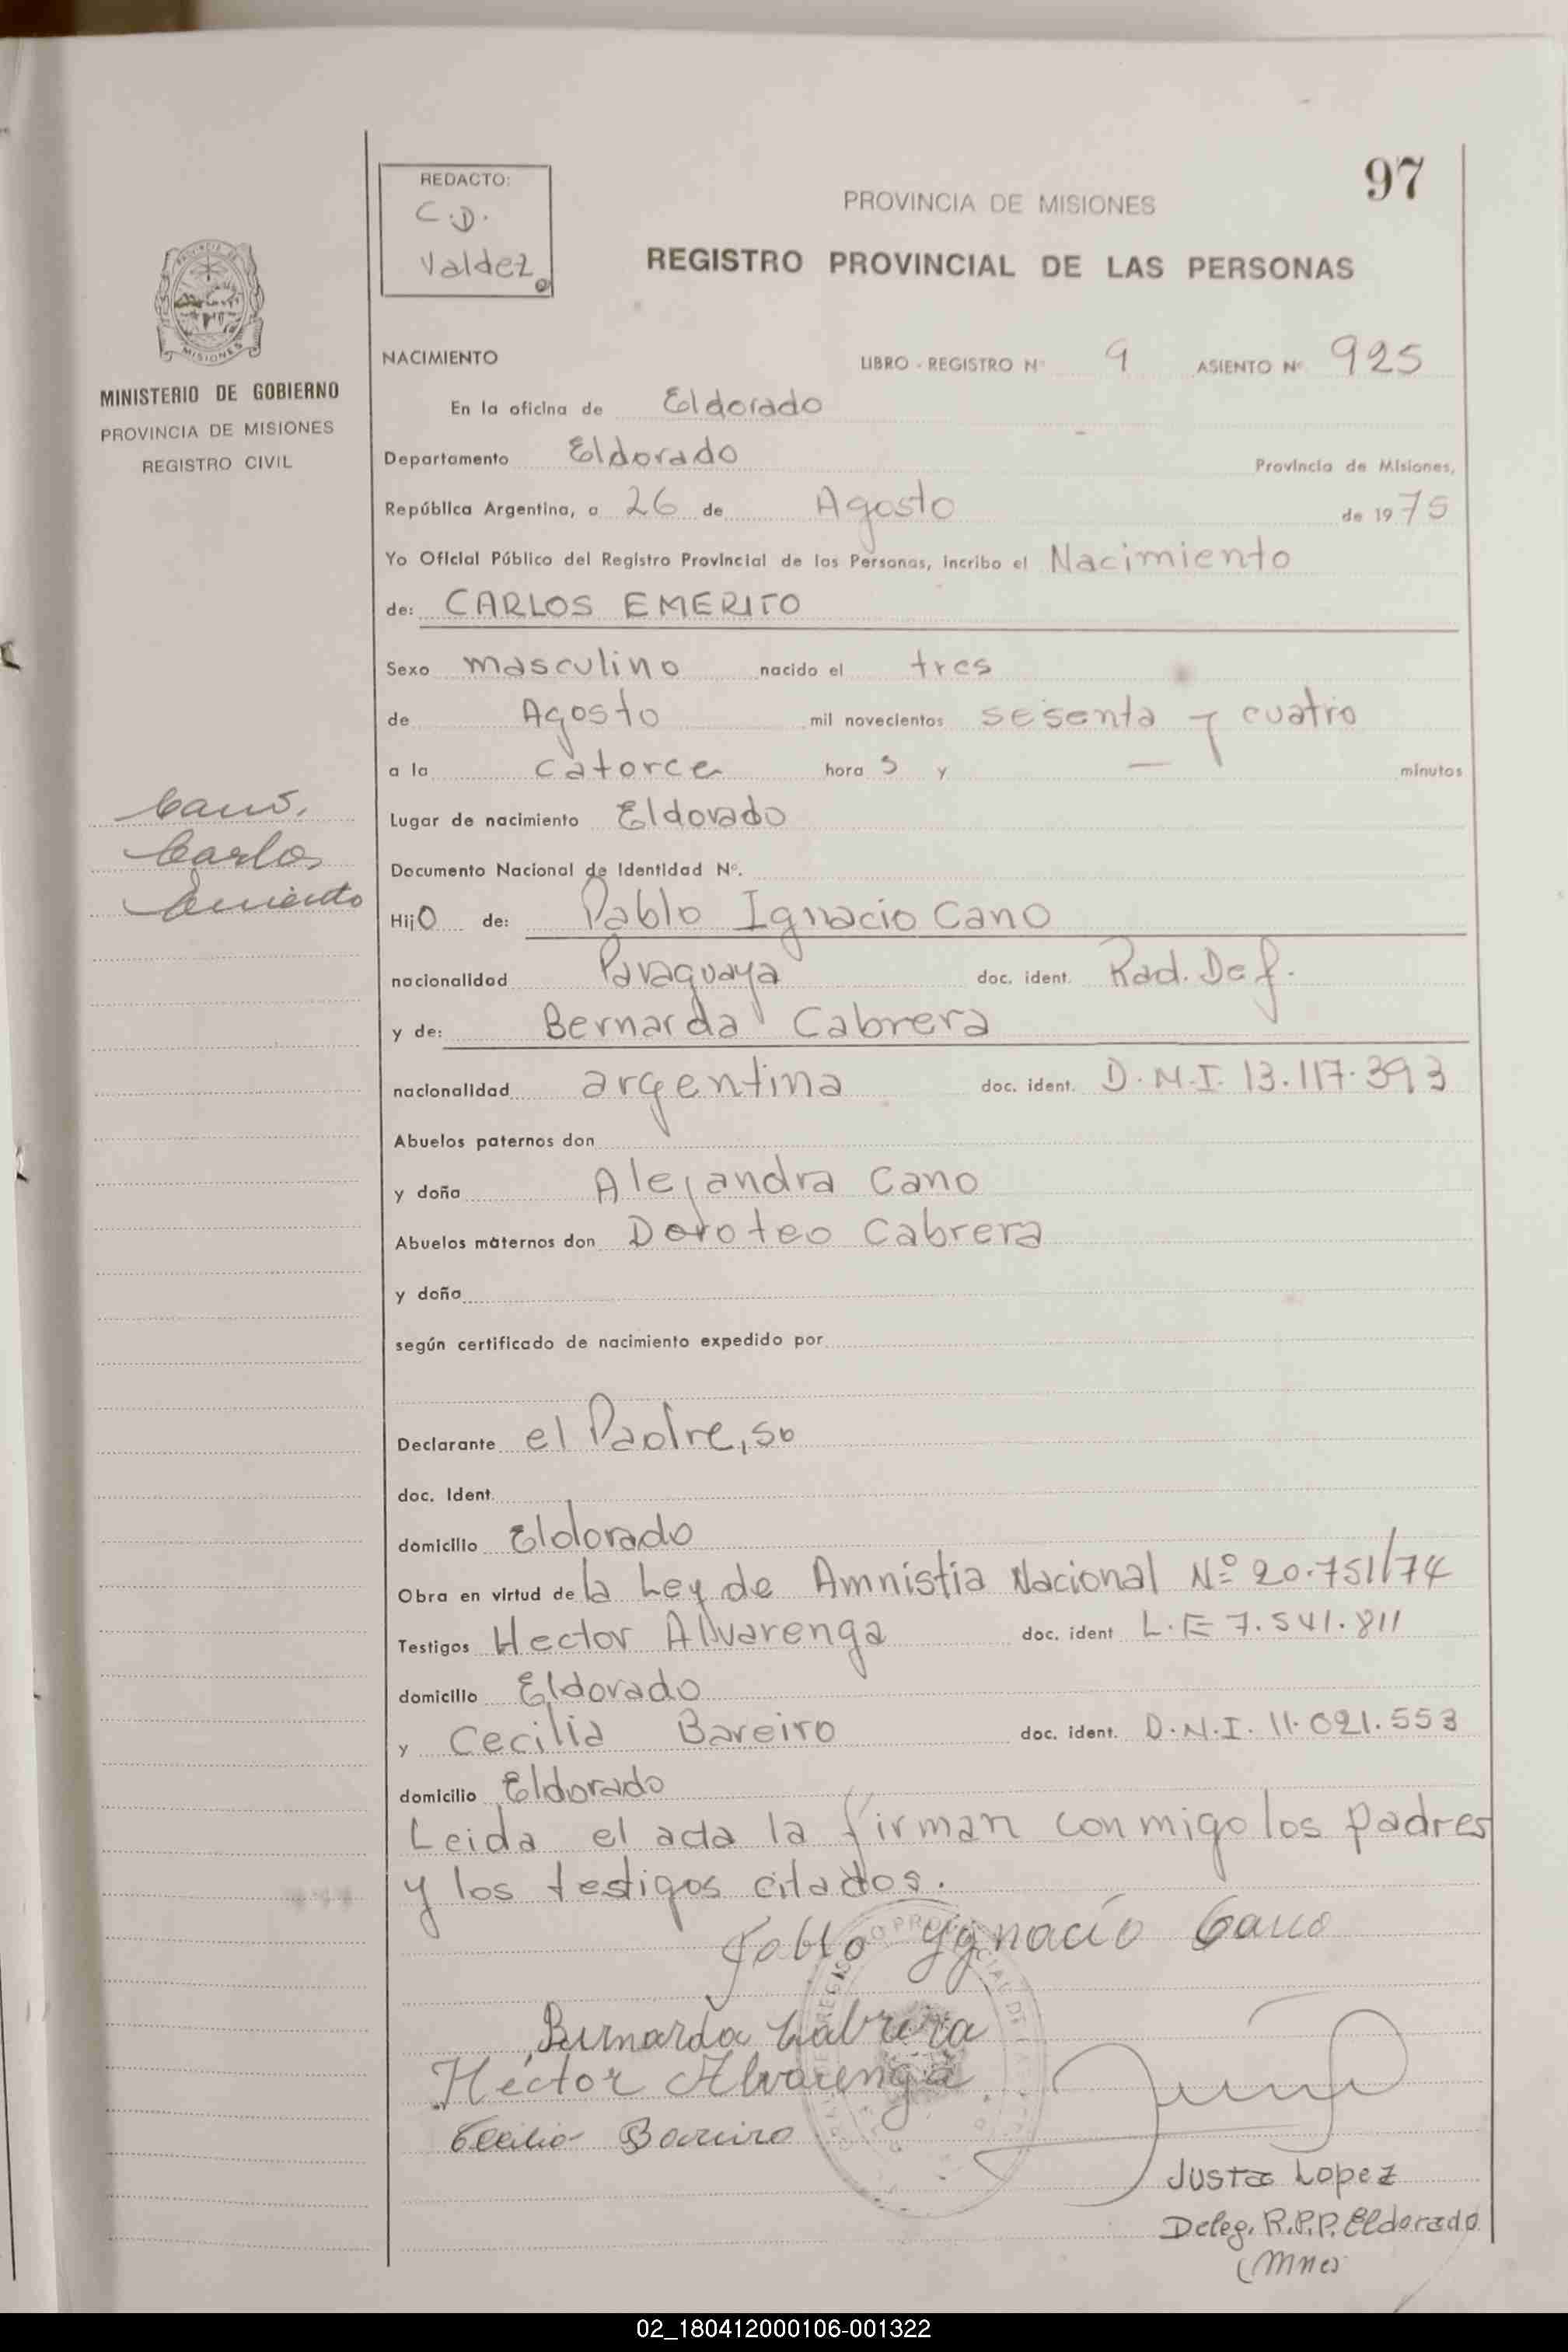 97
REDACTO:
C.D.
Valdez
PROVINCIA DE MISIONES
REGISTRO PROVINCIAL DE LAS PERSONAS
MISIONES
MINISTERIO DE GOBIERNO
PROVINCIA DE MISIONES
REGISTRO CIVIL
NACIMIENTO LIBRO - REGISTRO Nº 9 ASIENTO Nº 925
En la oficina de Eldorado
Departamento Eldorado Provincia de Misiones,
República Argentina, a 26 de Agosto de 1975
Yo Oficial Público del Registro Provincial de las Personas, incribo el Nacimiento
de: CARLOS EMERITO
Sexo masculino nacido el tres
de Agosto mil novecientos sesenta y cuatro
a la catorce hora s y — minutos
Lugar de nacimiento Eldorado
Cano,
Carlos
Emerito
Documento Nacional de Identidad Nº.
Hijo de: Pablo Ignacio Cano
nacionalidad Paraguaya doc. ident. Rad. Def.
y de: Bernarda Cabrera
nacionalidad argentina doc. ident. D.N.I. 13.117.393
Abuelos paternos don
y doña Alejandra Cano
Abuelos maternos don Doroteo Cabrera
y doña
según certificado de nacimiento expedido por
Declarante el Padre, so
doc. Ident.
domicilio Eldorado
Obra en virtud de la Ley de Amnistia Nacional Nº 20.751/74
Testigos Hector Alvarenga doc. ident L.E 7.541.811
domicilio Eldorado
y Cecilia Bareiro doc. ident. D.N.I. 11.021.553
domicilio Eldorado
Leida el acta la firman conmigo los padres
y los testigos citados.
Pablo Ygnacio Cano
Bernarda Cabrera
Héctor Alvarenga
Cecilia Bareiro
Justa Lopez
Deleg. R.P.P. Eldorado
(Mnes
02_180412000106-001322